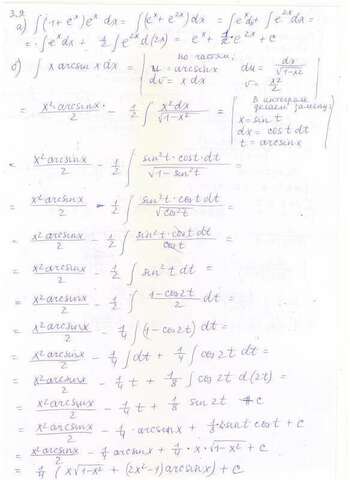 3.9
а) ∫(1+e^x)e^x dx = ∫(e^x + e^{2x})dx = ∫e^x dx + ∫e^{2x}dx =
= ∫e^x dx + 1/2 ∫e^{2x}d(2x) = e^x + 1/2·e^{2x} + c
б) ∫x arcsin x dx = | по частям: u = arcsinx du = dx/√(1-x²) dv = x dx v = x²/2 |
= x²·arcsinx/2 - 1/2 ∫ x²dx/√(1-x²) = | В интеграле делаем замену: x = sin t dx = cos t dt t = arcsinx |
= x²arcsinx/2 - 1/2 ∫ sin²t·cost·dt/√(1-sin²t) =
= x²arcsinx/2 - 1/2 ∫ sin²t·cost dt/√(cos²t) =
= x²arcsinx/2 - 1/2 ∫ sin²t·cost dt/cost =
= x²arcsinx/2 - 1/2 ∫ sin²t dt =
= x²arcsinx/2 - 1/2 ∫ (1-cos2t)/2 dt =
= x²arcsinx/2 - 1/4 ∫(1-cos2t)dt =
= x²arcsinx/2 - 1/4 ∫dt + 1/4 ∫cos2t dt =
= x²arcsinx/2 - 1/4 t + 1/8 ∫cos2t d(2t) =
= x²arcsinx/2 - 1/4 t + 1/8 sin2t + c
= x²arcsinx/2 - 1/4·arcsinx + 1/4·sint cost + c
= x²arcsinx/2 - 1/4 arcsinx + 1/4·x·√(1-x²) + c
= 1/4 (x√(1-x²) + (2x²-1)arcsinx) + c